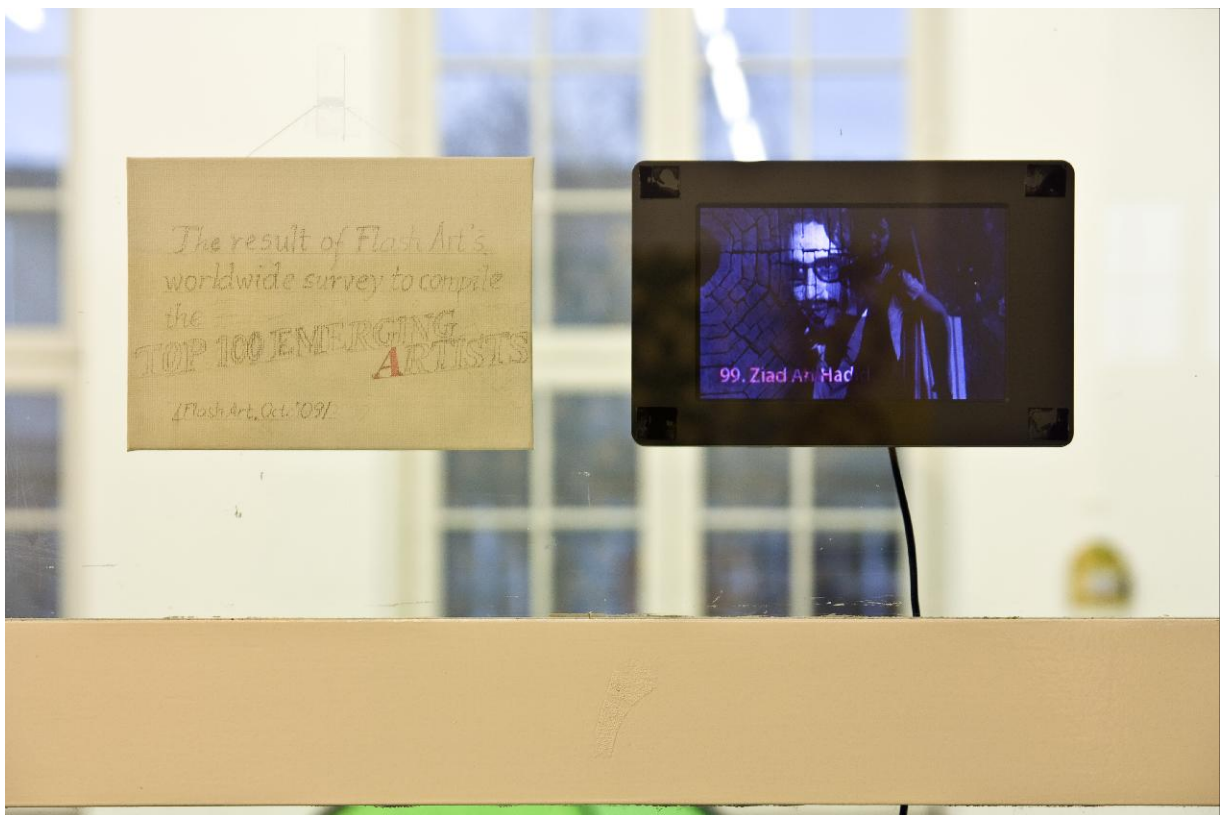 The result of Flash Art's
worldwide survey to compile
the
TOP 100 EMERGING
ARTISTS
(Flash Art, Oct '09)
99. Ziad An